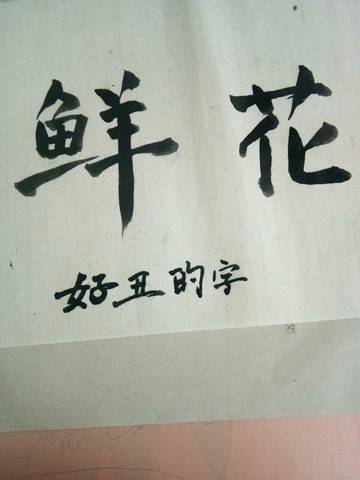 鲜花
好丑的字